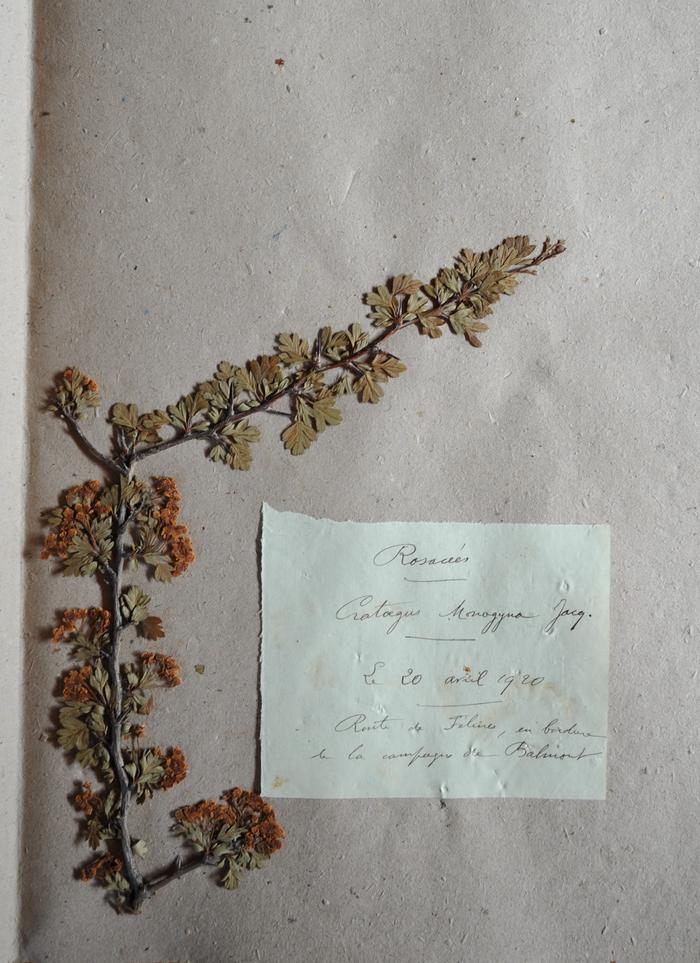 Rosacées
Crataegus Monogyna Jacq.
Le 20 avril 1920
Route de Félines, en bordure
de la campagne de Balmont